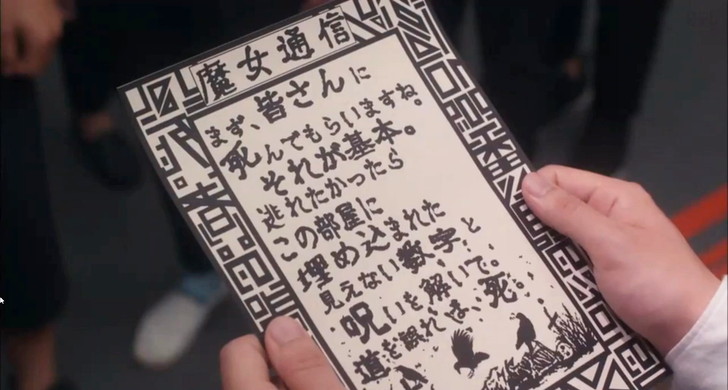 魔女通信
まず、皆さんに
死んでもらいますね。
それが基本。
逃れたかったら
この部屋に
埋め込まれた
見えない数字と
呪いを解いて。
道を誤れば、死。